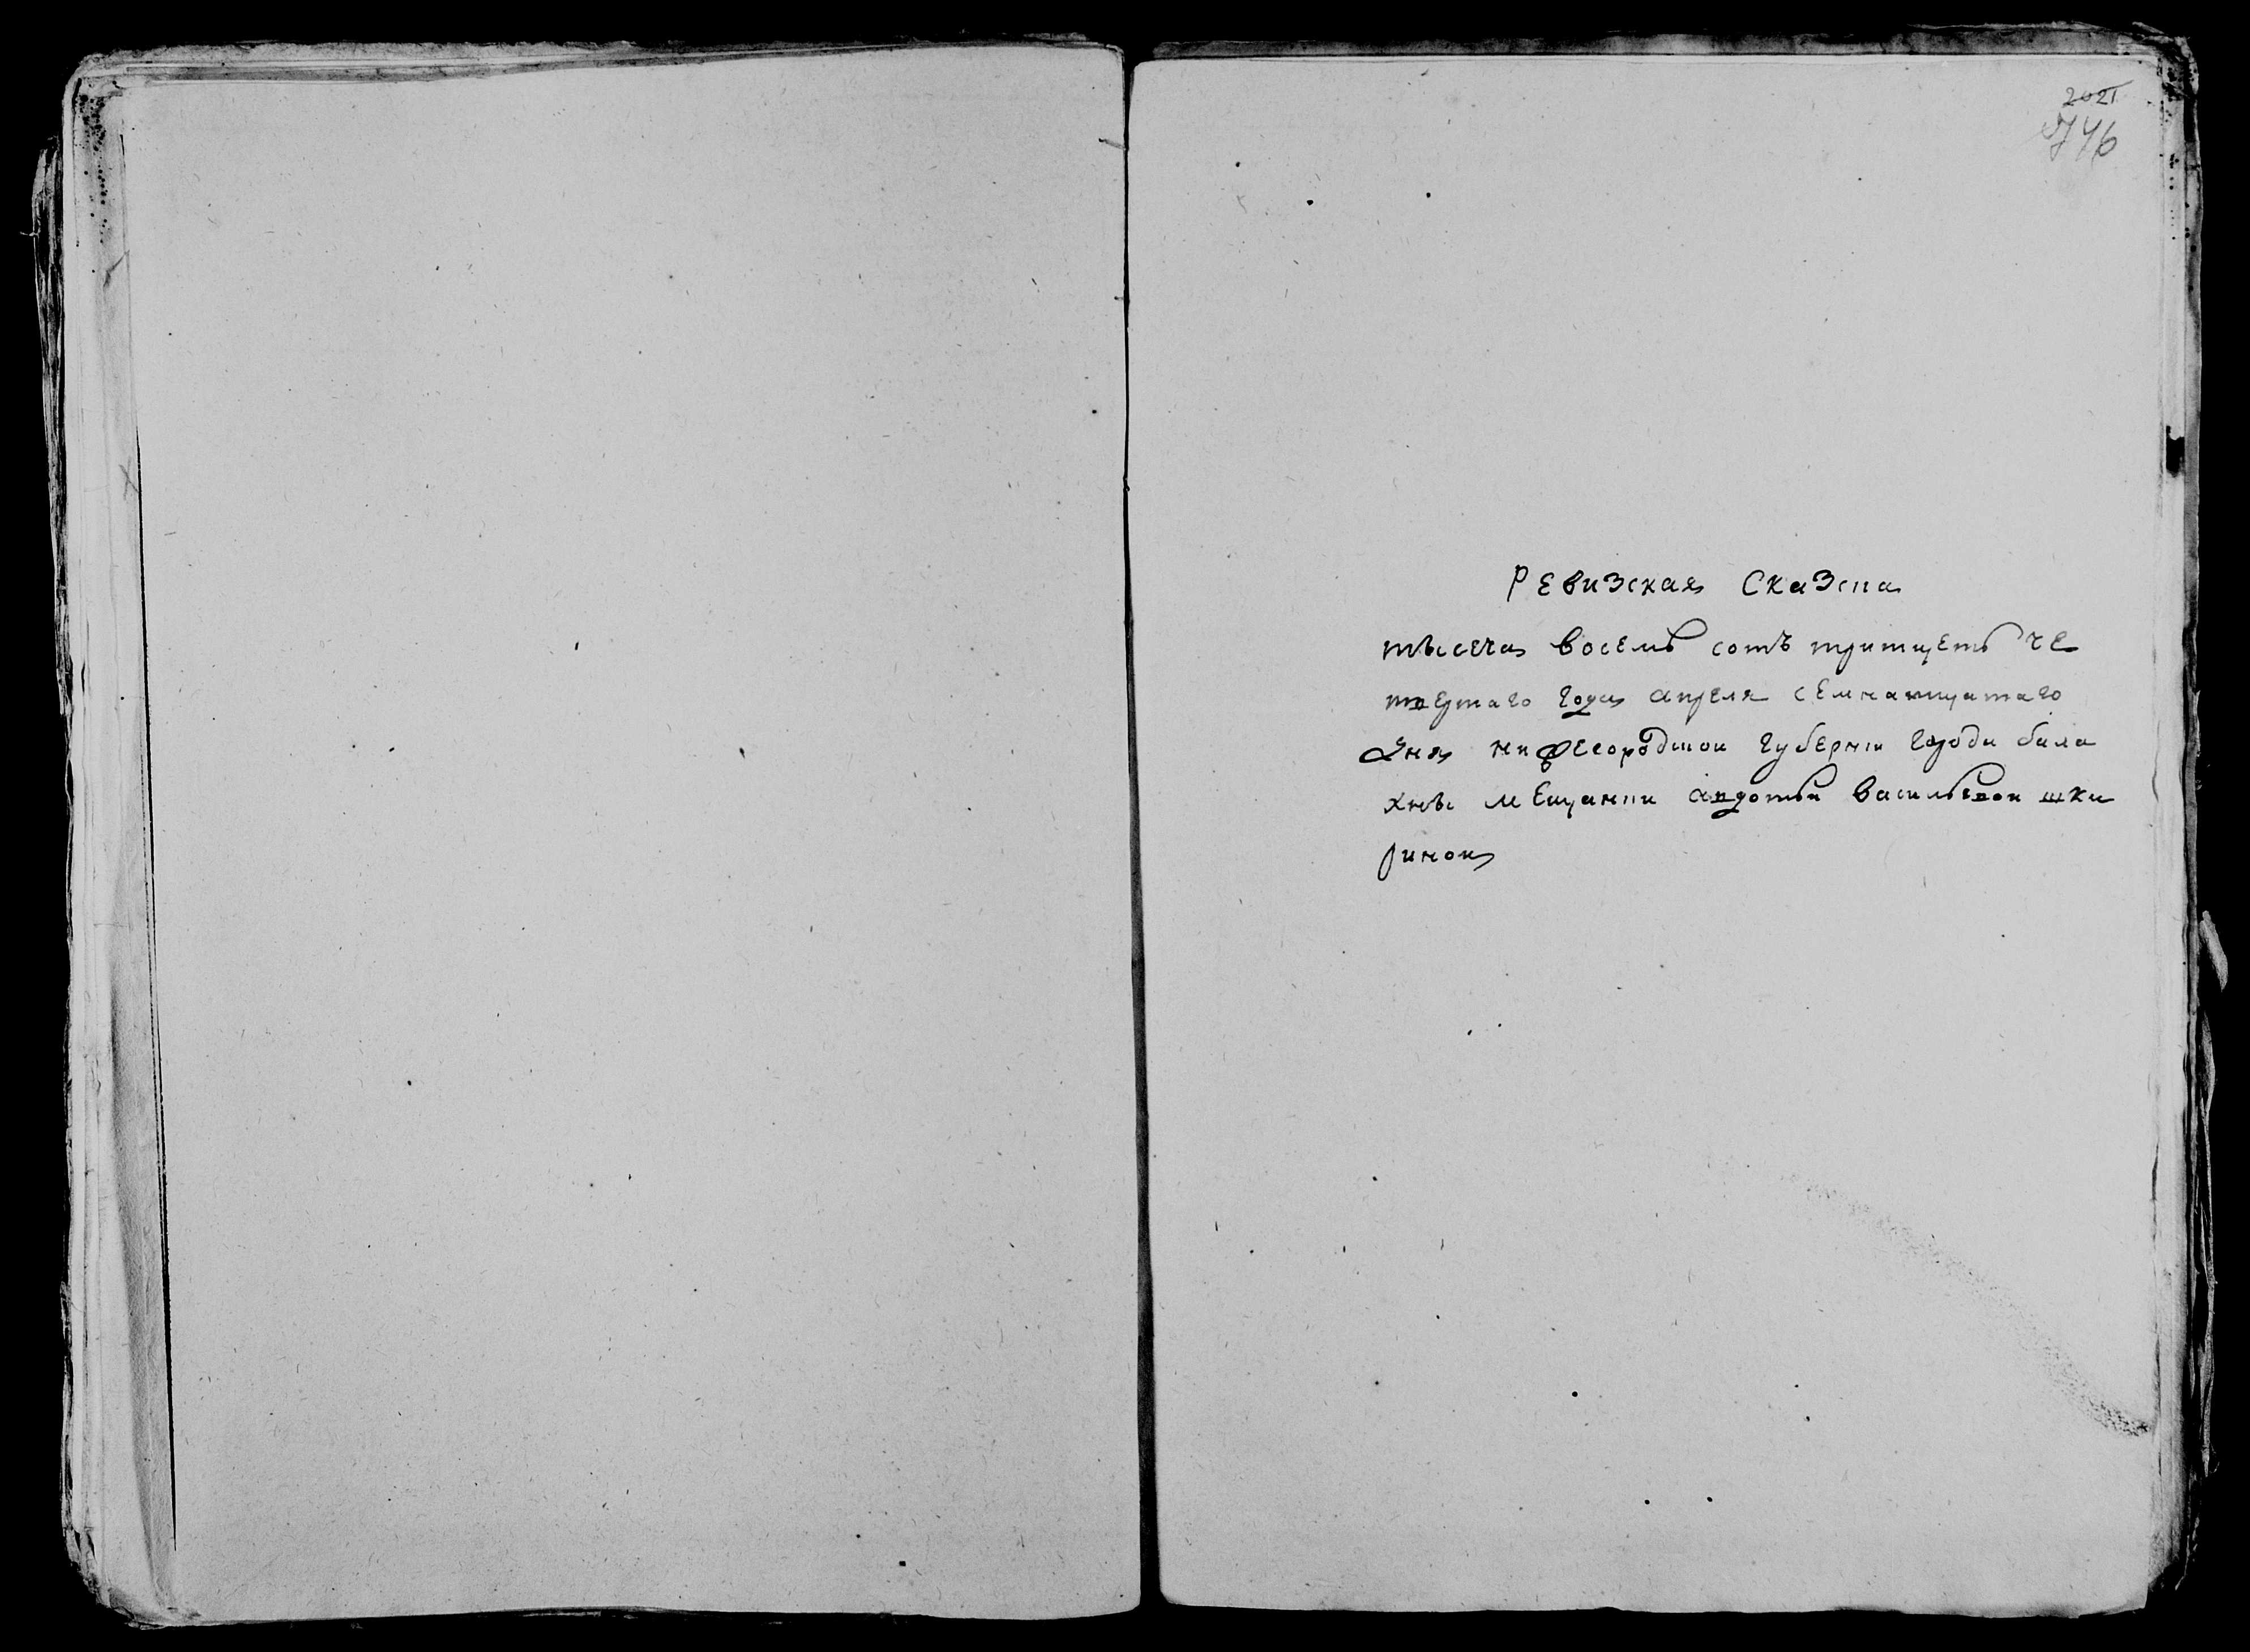 2021
746
Ревизская Сказка
тысеча восемь сотъ тритцеть че
твертаго года апреля семнатцатаго
дня нижегородской губернии города бала
хны мещанки авдотьи васильевой шки
риной